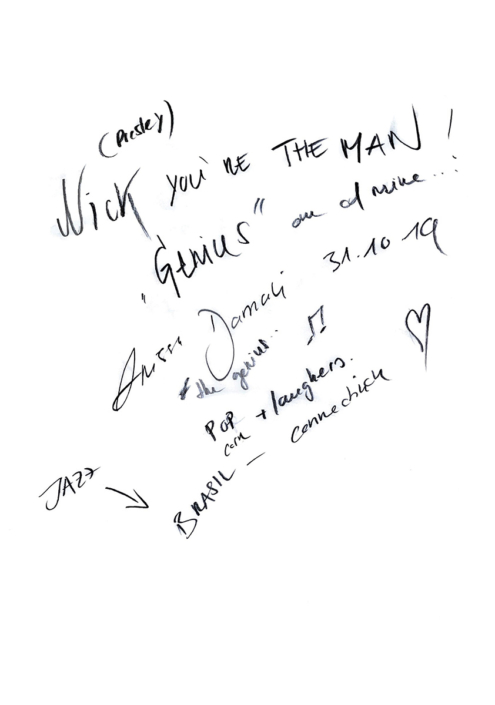 (Presley)
Nick YOU'RE THE MAN!
"GENIUS" one of mine...!
31.10.19
Damali
the genius...
POP corn + laughters.
JAZZ
BRASIL – connection